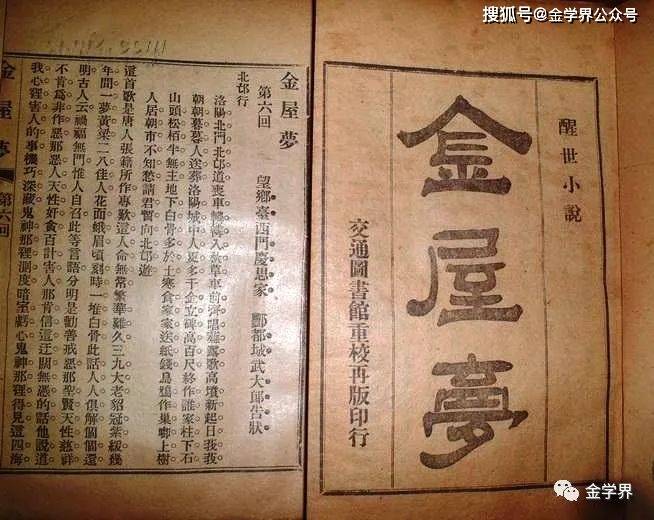 搜狐号@金学界公众号
醒世小說
金屋夢
交通圖書館重校再版印行
金屋夢
第六回 望鄉臺西門慶思家 酆都城武大郎告狀
北邙行
洛陽北門北邙道喪車轔轔入秋草車前齊唱薤露歌高墳新起日峩峩
朝朝暮暮人送葬洛陽城中人更多千金立碑高百尺終作誰家柱下石
山頭松柏半無主地下白骨多於土寒食家家送紙錢烏鴉作巢啣上樹
人居朝市不知愁請君暫向北邙遊
這首歌是唐人張籍所作專歎這人命無常繁華難久三九大老貂冠紫綬幾
年間一夢黃粱二八佳人花面蛾眉頃刻時一堆白骨此話人人俱解個個還
明古人云禍福無門惟人自召此等言語分明是勸善戒惡那聖賢天性慈祥
不肯爲非作惡那惡人天性奸貪百計害人那肯信這迂闊無憑的話他說道
我心裡害人的事機巧深藏鬼神那裡測度暗室虧心鬼神那裡得見這四海
金屋夢 第六回
金学界